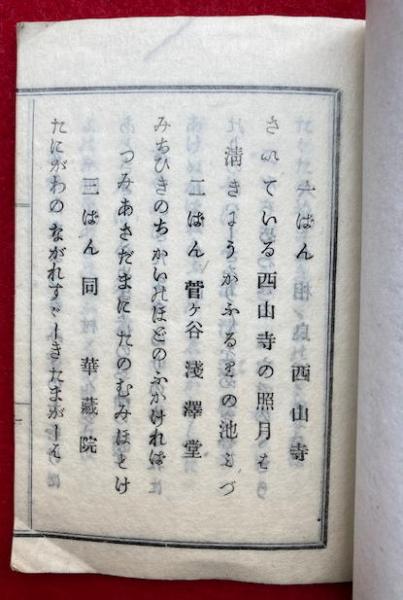 一ばん 相ヶ良 西山寺
さいている西山寺の照月も
清きようかふるさの池みづ
二ばん 菅ヶ谷 淺澤堂
みちびきのちかいのほどのふかければ
つみあさだまにたのむみほとけ
三ばん 同 華藏院
たにがわのながれすゞしきたまがしは